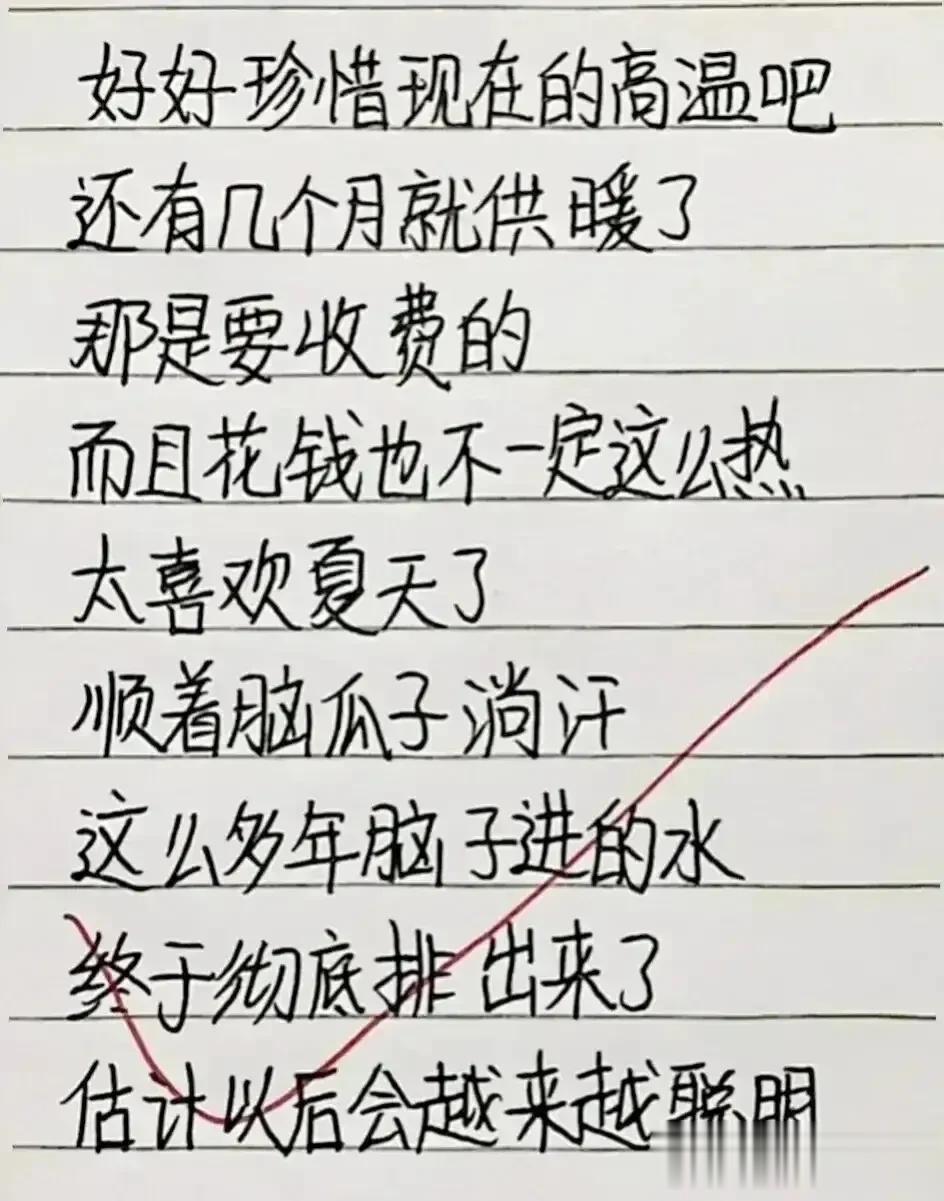 好好珍惜现在的高温吧
还有几个月就供暖了
那是要收费的
而且花钱也不一定这么热
太喜欢夏天了
顺着脑瓜子淌汗
这么多年脑子进的水
终于彻底排出来了
估计以后会越来越聪明